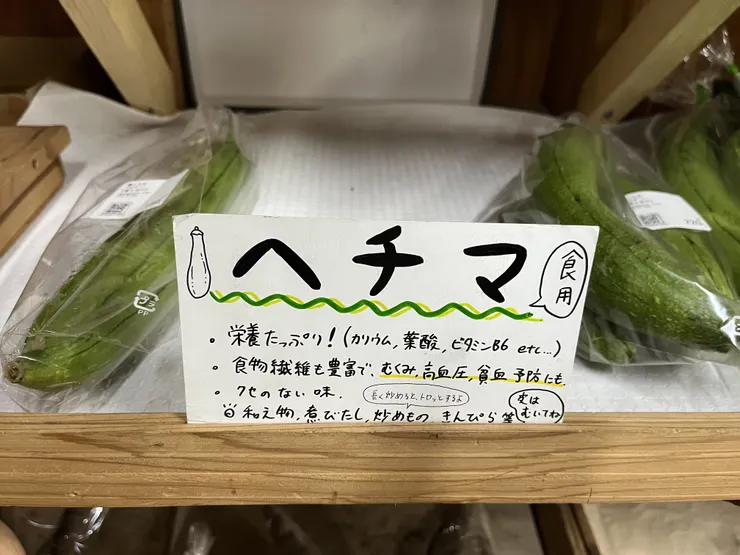 ヘチマ
食用
・栄養たっぷり！(カリウム,葉酸,ビタミンB6 etc...)
・食物繊維も豊富で、むくみ,高血圧,貧血 予防にも.
・クセのない味.
長く炒めると、トロッとするよ
和え物,煮びたし,炒めもの,きんぴら等
皮は
むいてね
プラ
PP